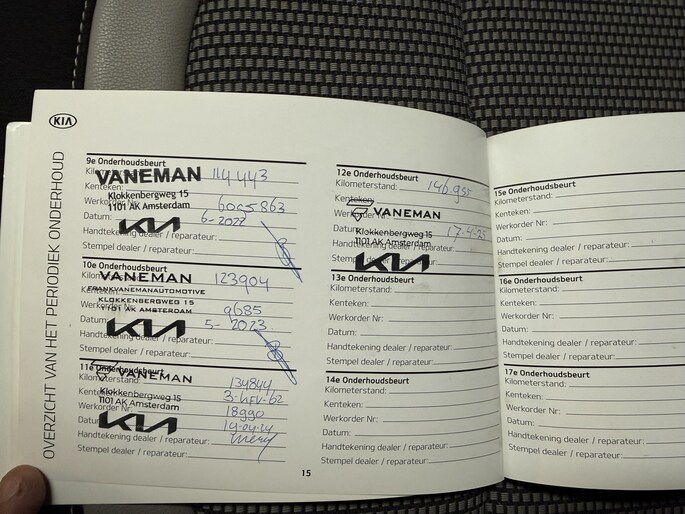 KIA
OVERZICHT VAN HET PERIODIEK ONDERHOUD
9e Onderhoudsbeurt
Kilometerstand: 114443
VANEMAN
Kenteken:
Klokkenbergweg 15
Werkorder Nr: 6005863
1101 AK Amsterdam
Datum: 6-2022
KIA
Handtekening dealer / reparateur:
Stempel dealer / reparateur:
10e Onderhoudsbeurt
Kilometerstand: 123904
VANEMAN
FRANKVANEMANAUTOMOTIVE
Kenteken:
KLOKKENBERGWEG 15
Werkorder Nr: 9685
1101 AK AMSTERDAM
Datum: 5-2023
KIA
Handtekening dealer / reparateur:
Stempel dealer / reparateur:
11e Onderhoudsbeurt
VANEMAN
Kilometerstand: 134844
Kenteken:
Klokkenbergweg 15
1101 AK Amsterdam
Werkorder Nr: 18990
Datum: 19-04-24
KIA
Handtekening dealer / reparateur:
Stempel dealer / reparateur:
12e Onderhoudsbeurt
Kilometerstand:
Kenteken:
VANEMAN
Werkorder Nr:
Datum: 17-4-25
Klokkenbergweg 15
1101 AK Amsterdam
Handtekening dealer / reparateur:
Stempel dealer / reparateur:
KIA
13e Onderhoudsbeurt
Kilometerstand:
Kenteken:
Werkorder Nr:
Datum:
Handtekening dealer / reparateur:
Stempel dealer / reparateur:
14e Onderhoudsbeurt
Kilometerstand:
Kenteken:
Werkorder Nr:
Datum:
Handtekening dealer / reparateur:
Stempel dealer / reparateur:
15
15e Onderhoudsbeurt
Kilometerstand:
Kenteken:
Werkorder Nr:
Datum:
Handtekening dealer / reparateur:
Stempel dealer / reparateur:
16e Onderhoudsbeurt
Kilometerstand:
Kenteken:
Werkorder Nr:
Datum:
Handtekening dealer / reparateur:
Stempel dealer / reparateur:
17e Onderhoudsbeurt
Kilometerstand:
Kenteken:
Werkorder Nr:
Datum:
Handtekening dealer / reparateur:
Stempel dealer / reparateur: